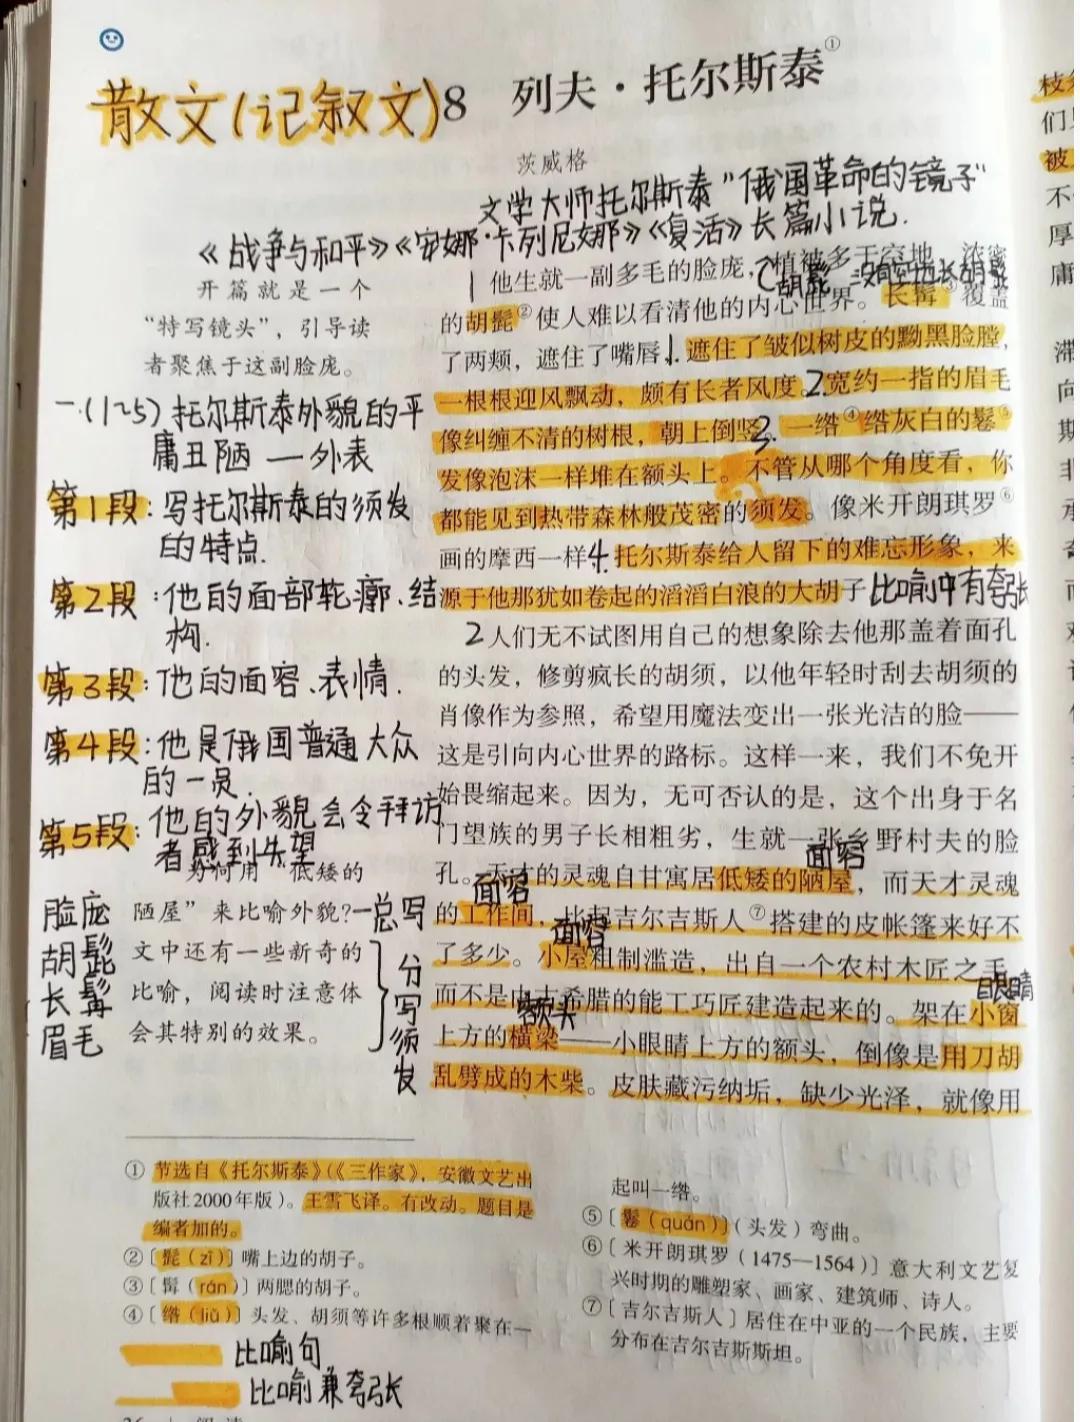 散文(记叙文)8 列夫·托尔斯泰①
茨威格
文学大师托尔斯泰"俄国革命的镜子"
《战争与和平》《安娜·卡列尼娜》《复活》长篇小说.
开篇就是一个
“特写镜头”，引导读
者聚焦于这副脸庞。
一.(1~5)托尔斯泰外貌的平
庸丑陋 — 外表
第1段:写托尔斯泰的须发
的特点.
第2段:他的面部轮廓、结
构.
第3段:他的面容、表情.
第4段:他是俄国普通大众
的一员.
第5段:他的外貌会令拜访
者感到失望
为何用“低矮的
陋屋”来比喻外貌?
文中还有一些新奇的
比喻，阅读时注意体
会其特别的效果。
脸庞
胡髭
长髯
眉毛
—总写
分写须发
1 他生就一副多毛的脸庞，植被多于空地，浓密
胡髭
的胡髭②使人难以看清他的内心世界。长髯③覆盖
了两颊，遮住了嘴唇，1.遮住了皱似树皮的黝黑脸膛，
一根根迎风飘动，颇有长者风度。2.宽约一指的眉毛
像纠缠不清的树根，朝上倒竖。3.一绺④绺灰白的鬈⑤
发像泡沫一样堆在额头上。不管从哪个角度看，你
都能见到热带森林般茂密的须发。像米开朗琪罗⑥
画的摩西一样，4.托尔斯泰给人留下的难忘形象，来
源于他那犹如卷起的滔滔白浪的大胡子 比喻中有夸张
2人们无不试图用自己的想象除去他那盖着面孔
的头发，修剪疯长的胡须，以他年轻时刮去胡须的
肖像作为参照，希望用魔法变出一张光洁的脸——
这是引向内心世界的路标。这样一来，我们不免开
始畏缩起来。因为，无可否认的是，这个出身于名
门望族的男子长相粗劣，生就一张乡野村夫的脸
面容
孔。天才的灵魂自甘寓居低矮的陋屋，而天才灵魂
面容
的工作间，比起吉尔吉斯人⑦搭建的皮帐篷来好不
面容
了多少。小屋粗制滥造，出自一个农村木匠之手，
眼睛
而不是由古希腊的能工巧匠建造起来的。架在小窗
额头
上方的横梁——小眼睛上方的额头，倒像是用刀胡
乱劈成的木柴。皮肤藏污纳垢，缺少光泽，就像用
① 节选自《托尔斯泰》(《三作家》，安徽文艺出
版社2000年版)。王雪飞译。有改动。题目是
编者加的。
②〔髭（zī）〕嘴上边的胡子。
③〔髯（rán）〕两腮的胡子。
④〔绺（liǔ）〕头发、胡须等许多根顺着聚在一
起叫一绺。
⑤〔鬈（quán）〕（头发）弯曲。
⑥〔米开朗琪罗（1475—1564）〕意大利文艺复
兴时期的雕塑家、画家、建筑师、诗人。
⑦〔吉尔吉斯人〕居住在中亚的一个民族，主要
分布在吉尔吉斯斯坦。
比喻句
比喻兼夸张